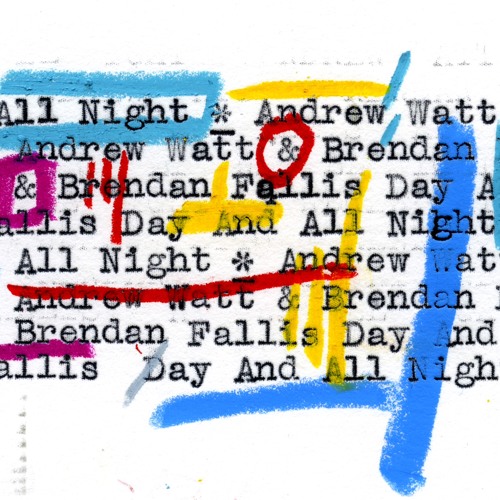 All Night * Andrew Watt
Andrew Watt & Brendan
& Brendan Fallis Day A
allis Day And All Night
All Night * Andrew Wat
Andrew Watt & Brendan
Brendan Fallis Day And
allis Day And All Nigh